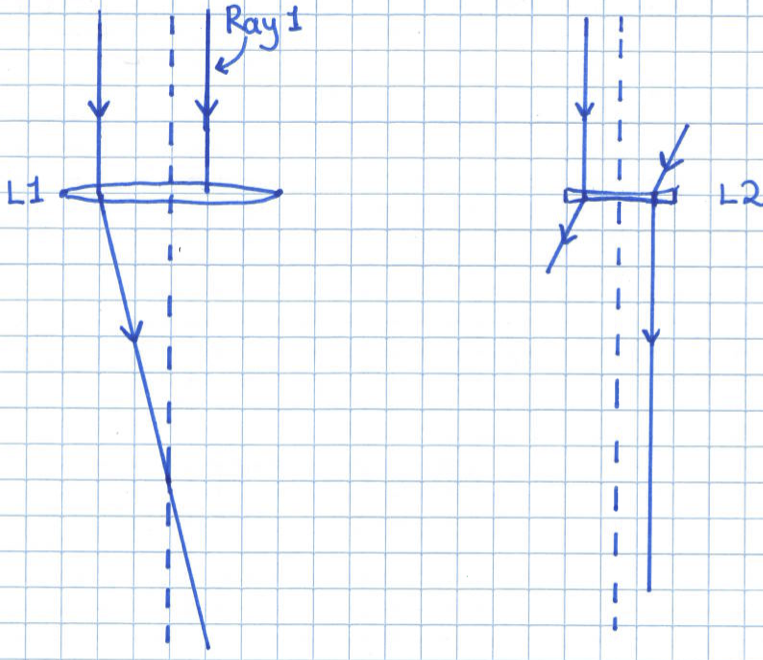 Ray 1
L1
L2